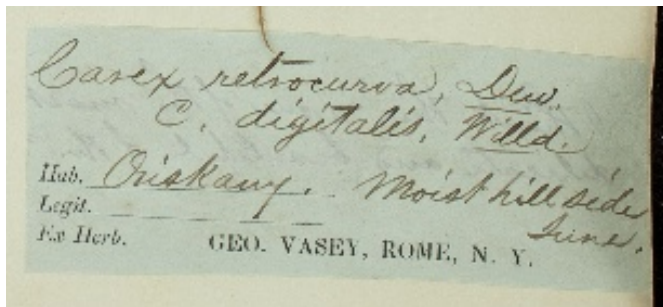 Carex retrocurva, Dew.
C. digitalis, Willd.
Hab. Oriskany. Moist hill side
Legit. June.
Ex Herb. GEO. VASEY, ROME, N. Y.